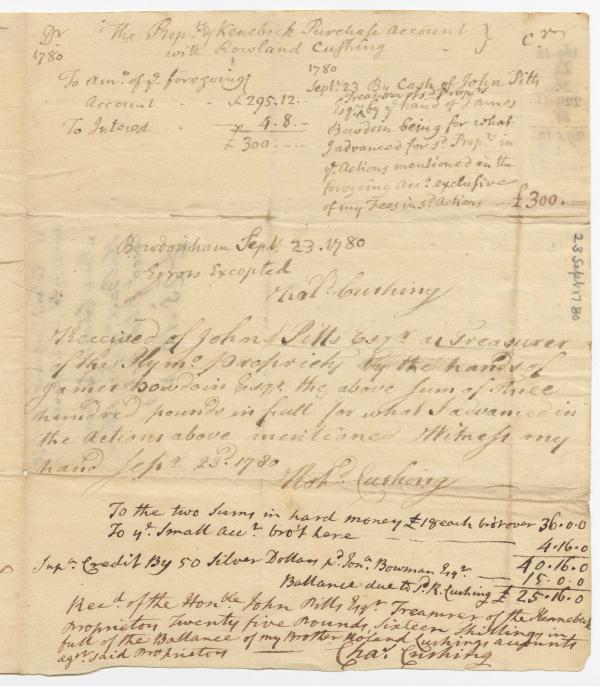 Dr The Prop.ts of Kenebeck Purchase Account Cr.
with Rowland Cushing
1780
To Amo. of ye. foregoing
Account £295.12.
To Interest 4.8.
£300.
1780
Sept. 23 By Cash of John Pitts
Treasurer of sd. Propr.s
Esqr. by ye. hand of James
Bowdoin being for what
I advanced for sd. Propr.s in
ye. Actions mentioned in the
foregoing Acc.t exclusive
of my Fees in sd. Actions £300.
Bowdoinham Sept. 23. 1780
Errors Excepted
Cushing
Received of John Pitts Esqr. as Treasurer
of the Plymo. Propriety by the hands of
James Bowdoin Esqr. the above Sum of three
hundred pounds in full for what I advanced in
the Actions above mentioned Witness my
hand Sepr. 23d. 1780
Cushing
28 Sept 1780
To the two sums in hard money £18 each brot over 36.0.0
To ye. Small Acc.t bro't here 4.16.0
40.16.0
Credit By 50 Silver Dollars pd. Jona. Bowman Esqr. 15.0.0
Ballance due to sd. R. Cushing £25.16.0
Recd. of the Honble John Pitts Esqr. Treasurer of the Kennebeck
Proprietors Twenty five Pounds, Sixteen Shillings in
full of the Ballance of my Brother Roland Cushings accounts
agst. said Proprietors
Chas. Cushing